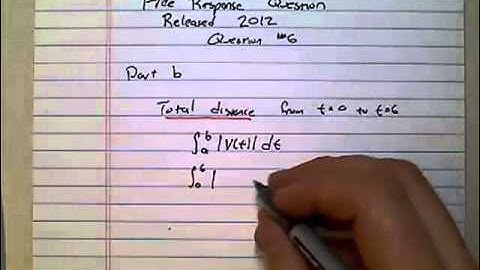 Free Response Question
Released 2012
Question #6
Part b
Total distance from t=0 to t=6
∫ₐᵇ |v(t)| dt
∫₀⁶ |